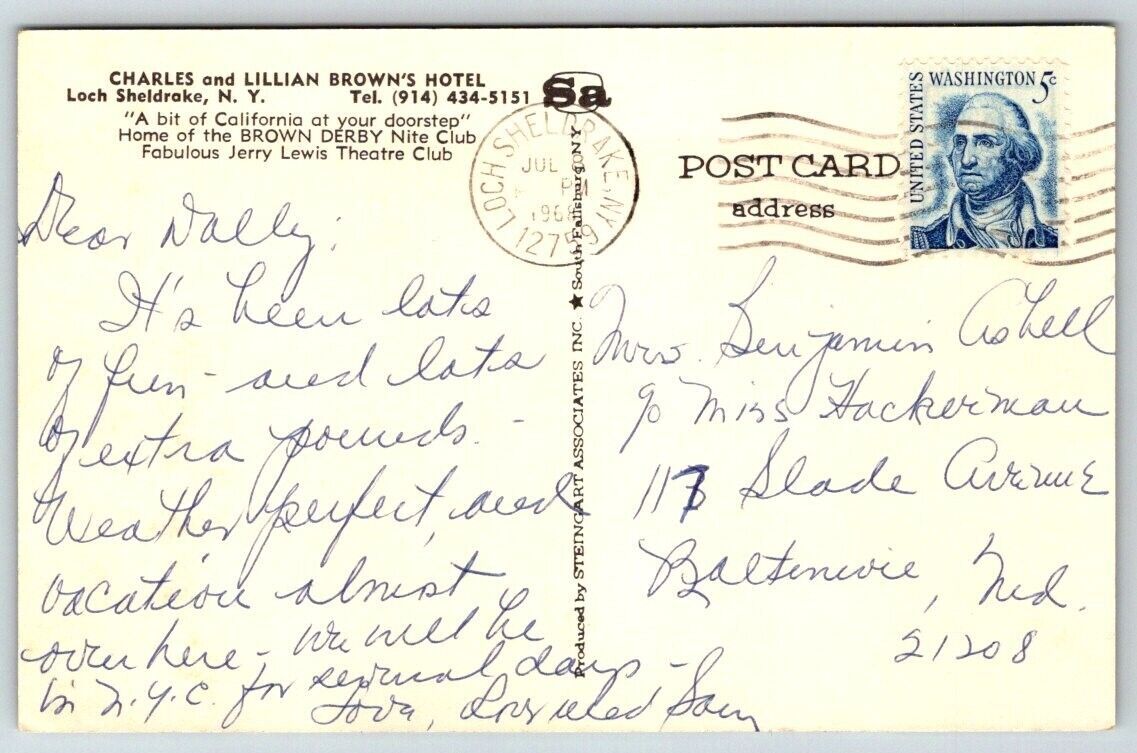 CHARLES and LILLIAN BROWN'S HOTEL
Loch Sheldrake, N. Y. Tel. (914) 434-5151
"A bit of California at your doorstep"
Home of the BROWN DERBY Nite Club
Fabulous Jerry Lewis Theatre Club
Dear Dolly:
It's been lots
of fun - and lots
of extra pounds. -
Weather perfect, and
vacation almost
over here - We will be
in N.Y.C. for several days -
Love, and Sam
Sa
LOCH SHELDRAKE, NY
JUL
PM
1968
12759
Produced by STEINGART ASSOCIATES INC. ★ South Fallsburg, NY
POST CARD
address
UNITED STATES
WASHINGTON 5c
Mrs. Benjamin Ashell
c/o Miss Hackerman
117 Slade Avenue
Baltimore, Md.
21208